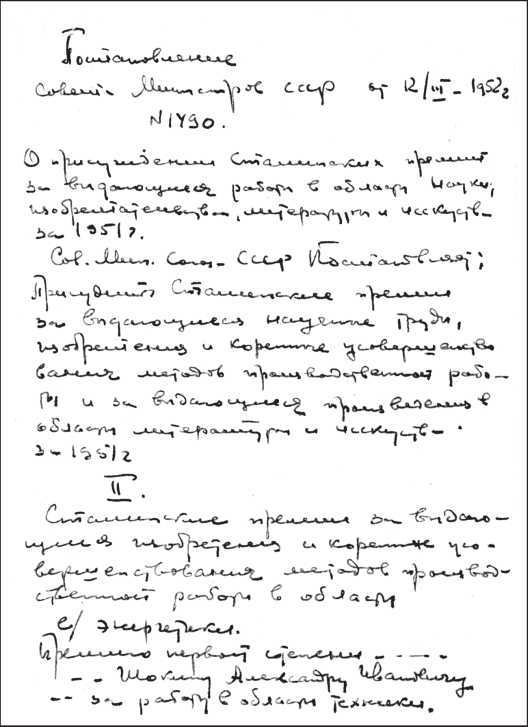 Постановление
Совета Министров СССР от 12/III-1952г
N1490.
О присуждении Сталинских премий
за выдающиеся работы в области науки,
изобретательства, литературы и искусства
за 1951г.
Сов. Мин. Союза СССР Постановляет;
Присудить Сталинские премии
за выдающиеся научные труды,
изобретения и коренные усовершенство
вания методов производственной рабо-
ты и за выдающиеся произведения в
области литературы и искусства.
за 1951г
II.
Сталинские премии за выдаю-
щиеся изобретения и коренные усо-
вершенствования методов производ-
ственной работы в области
е/ энергетики.
Премию первой степени - - - -
- - Шокину Александру Ивановичу
-- за работу в области техники.